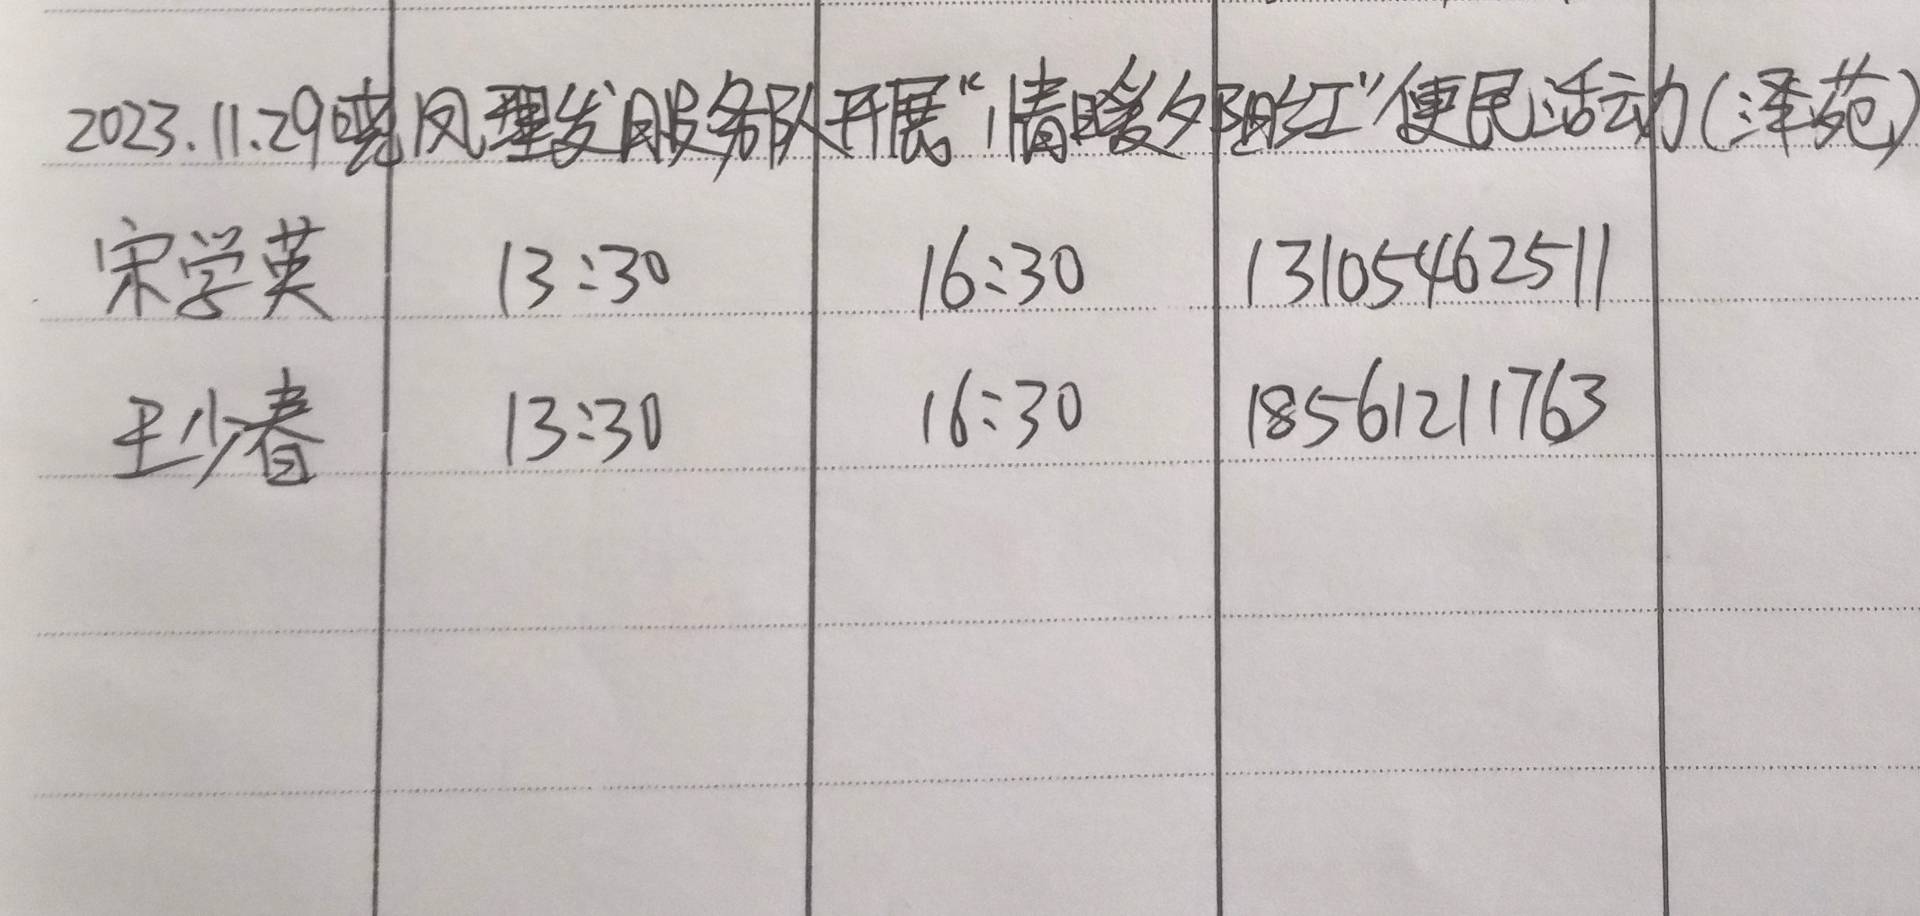 2023.11.29晓凤理发服务队开展“情暖夕阳红”便民活动(泽苑)
宋学英 13:30 16:30 13105462511
王少春 13:30 16:30 18561211763